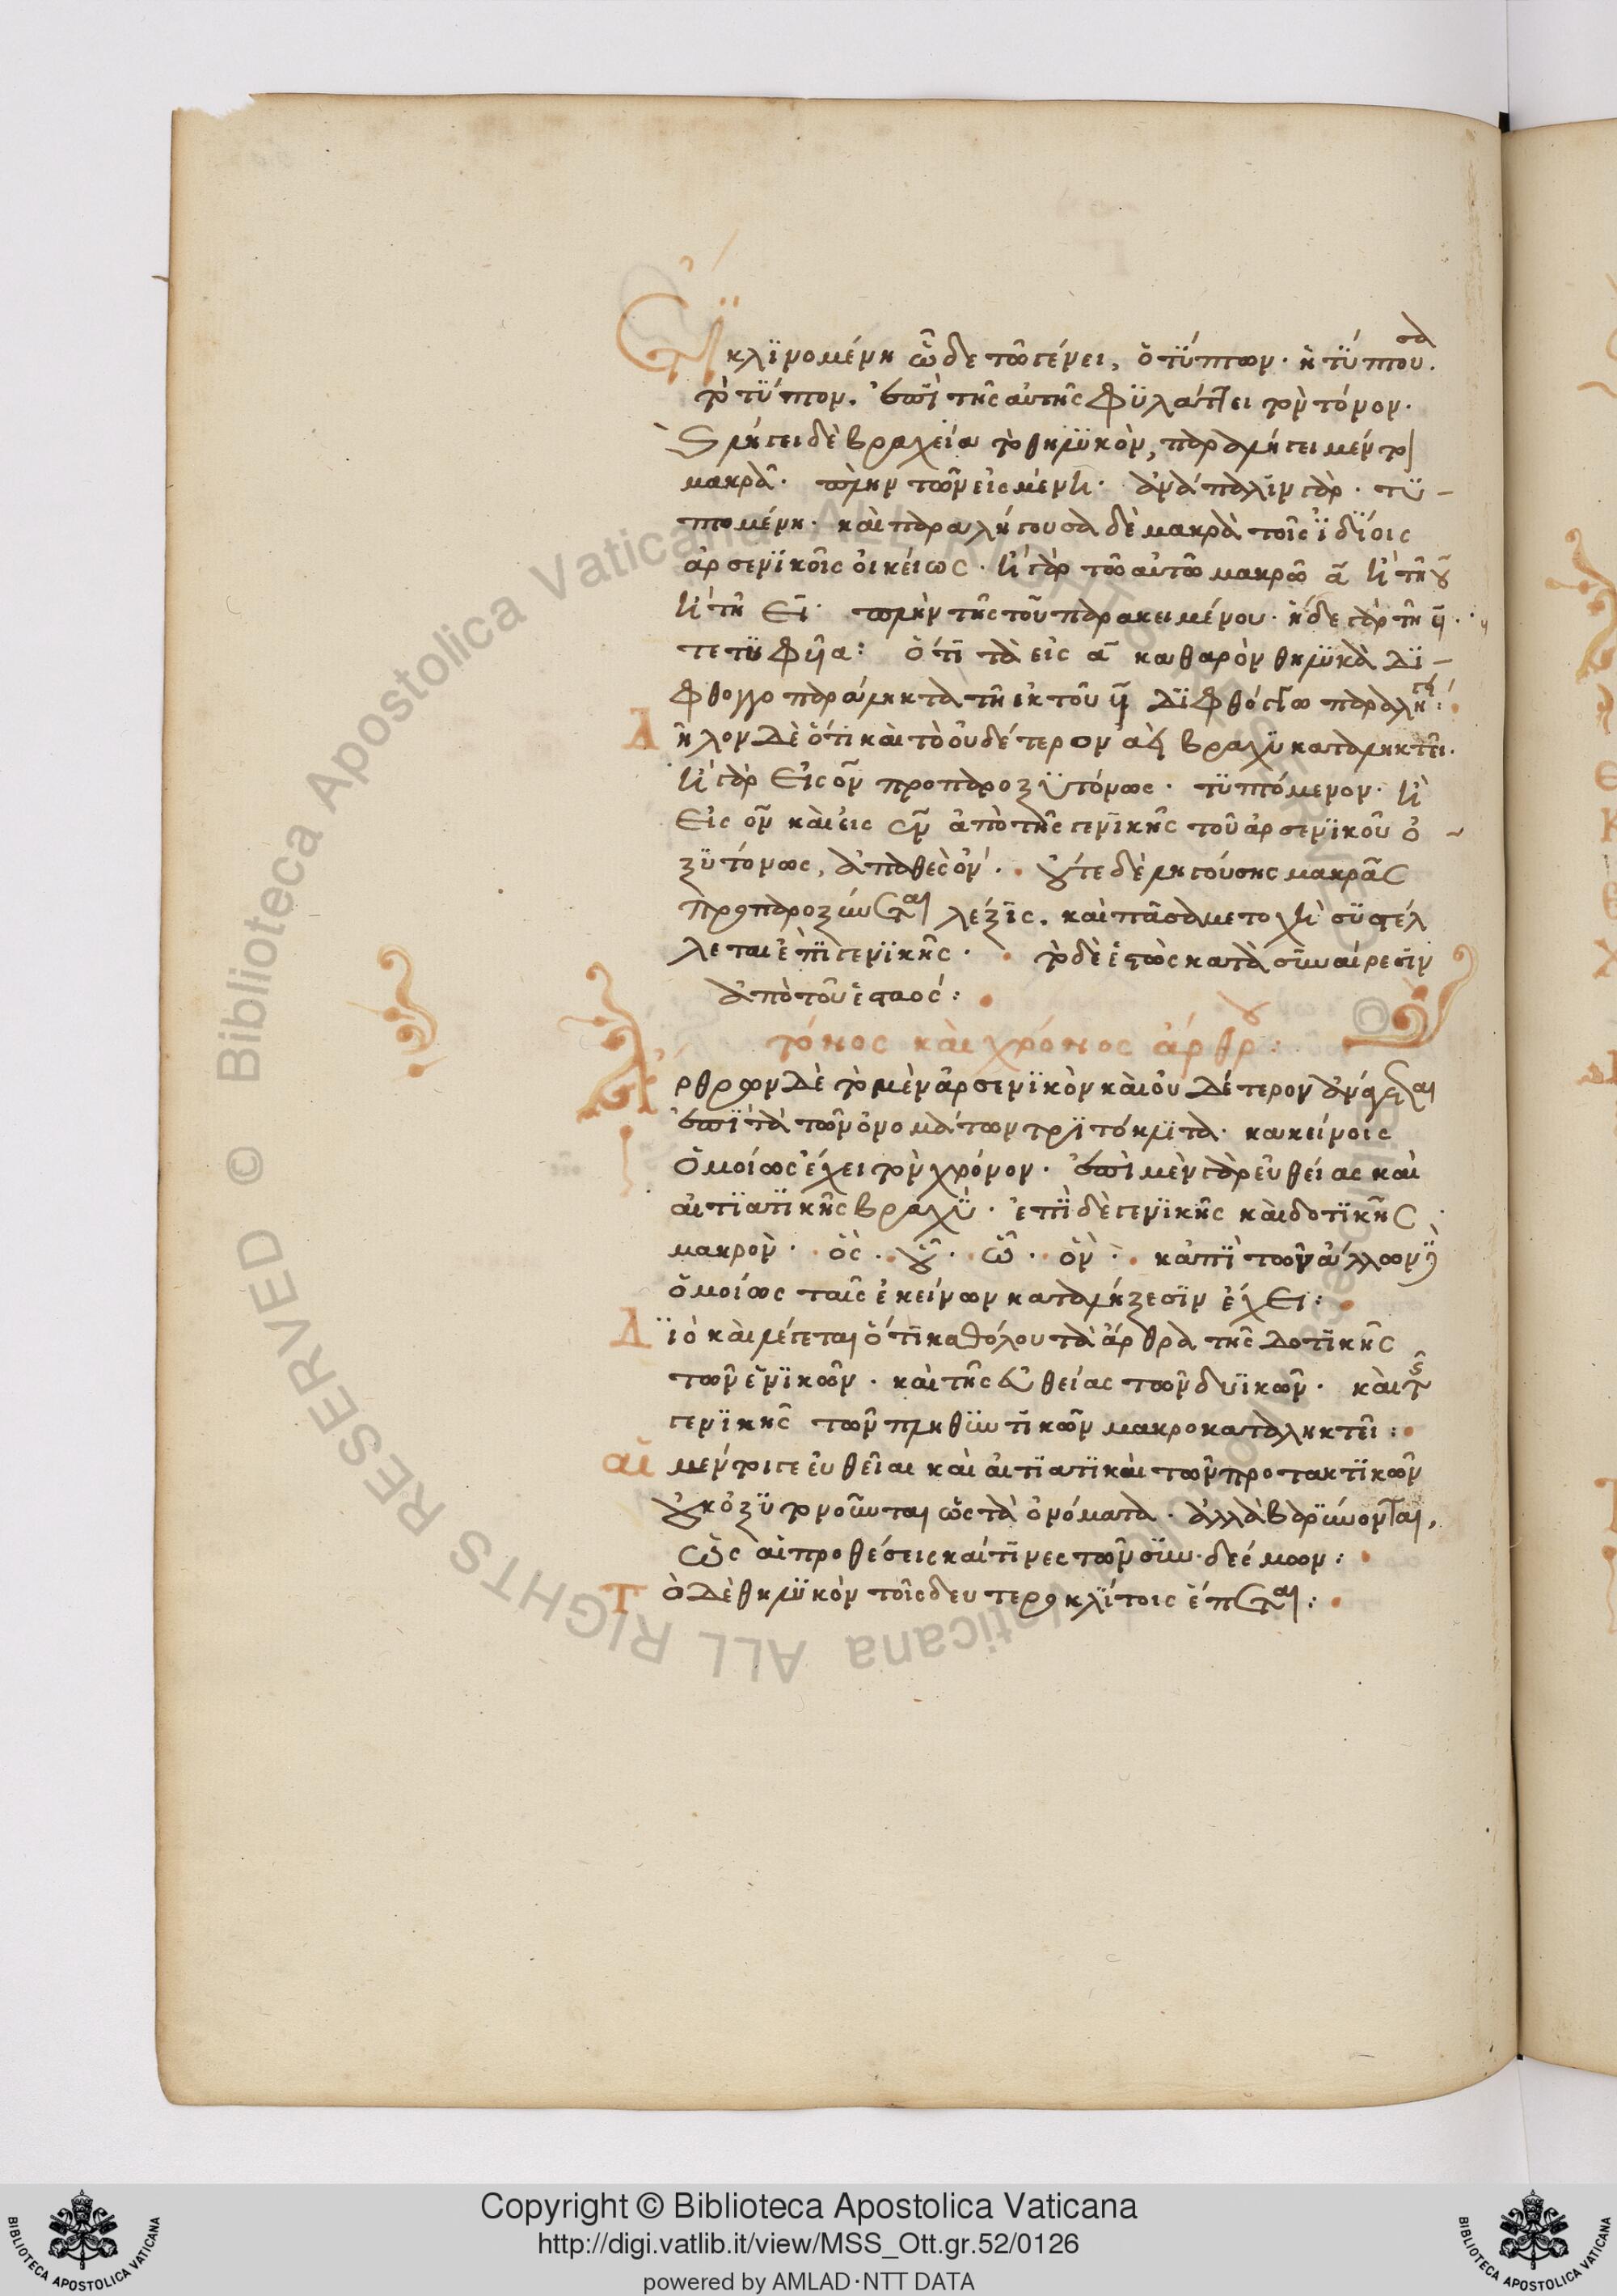 κλϊνομένη ὧδε τῶ γένει, ὁ τύπτων· ἡ τύπτουσα.
τὸ τύπτον. ἐπὶ τῆς αὐτῆς φυλάττει τὸν τόνον·
λήγει δὲ βραχεία τὸ θηλυκὸν, παραλήγει μέντοι
μακρᾶ· πλὴν τῶν εἰς μένη· ἀνάπαλιν γάρ· τυ-
πτομένη· καὶ παραλήγουσα δὲ μακρὰ τοῖς ἰδίοις
ἀρσενικοῖς οἰκείως· ἢ γὰρ τῶ αὐτῶ μακρῶ ᾱ ἢ τῆ ου
ἢ τῆ ει· πλὴν τῆς τοῦ παρακειμένου· ἥδε γὰρ τῆ υι·
τετυφυῖα: ὅτι τὰ εἰς α καθαρὸν θηλυκὰ δι-
φθογγοπαράληκτα τῆ ἐκ τοῦ υι διφθόγγω παραλήγει:
Δῆλον δὲ ὅτι καὶ τὸ οὐδέτερον ἀεὶ βραχυκαταληκτεῖ.
ἢ γὰρ εἰς ον προπαροξυτόνως· τυπτόμενον· ἢ
εἰς ον καὶ εἰς αν ἀπὸ τῆς γενικῆς τοῦ ἀρσενικοῦ ὀ-
ξυτόνως, ἀποθέσθ· οὔτε δὲ ληγούσης μακρᾶς
προπαροξύνεται λέξις. καὶ πᾶσα μετοχὴ συστέλ
λεται ἐπὶ γενικῆς· τὸ δὲ ἑστὼς κατὰ συναίρεσιν
ἀπὸ τοῦ ἑσταός:
τόνος καὶ χρόνος ἄρθρου:
Ἄρθρων δὲ τὸ μὲν ἀρσενικὸν καὶ οὐδέτερον
ἐπὶ τὰ τῶν ὀνομάτων τριτόκλιτα· κακείνοις
ὁμοίως ἔχει τὸν χρόνον· ἐπὶ μὲν γὰρ εὐθείας καὶ
αἰτιατικῆς βραχὺ· ἐπὶ δὲ γενικῆς καὶ δοτικῆς
μακρον· ὃς· οὗ· ὧ· ὃν· κἀπὶ τῶν ἄλλων
ὁμοίως ταῖς ἐκείνων καταλήξεσιν ἔχει:
Διὸ καὶ λέγεται ὅτι καθόλου τὰ ἄρθρα τῆς δοτικῆς
τῶν ἑνικῶν· καὶ τῆς εὐθείας τῶν δυϊκῶν· καὶ τῆς
γενικῆς τῶν πληθυντικῶν μακροκαταληκτεῖ:
αἱ μέντοιγε εὐθεῖαι καὶ αἰτιατικαὶ τῶν προτακτικῶν
οὐκ ὀξυτονοῦνται ὡς τὰ ὀνόματα· ἀλλὰ βαρύνονται,
ὡς αἱ προθέσεις καί τινες τῶν συνδέσμων:
Τὸ δὲ θηλυκὸν τοῖς δευτεροκλίτοις ἕπεται:
Copyright © Biblioteca Apostolica Vaticana
http://digi.vatlib.it/view/MSS_Ott.gr.52/0126
powered by AMLAD·NTT DATA